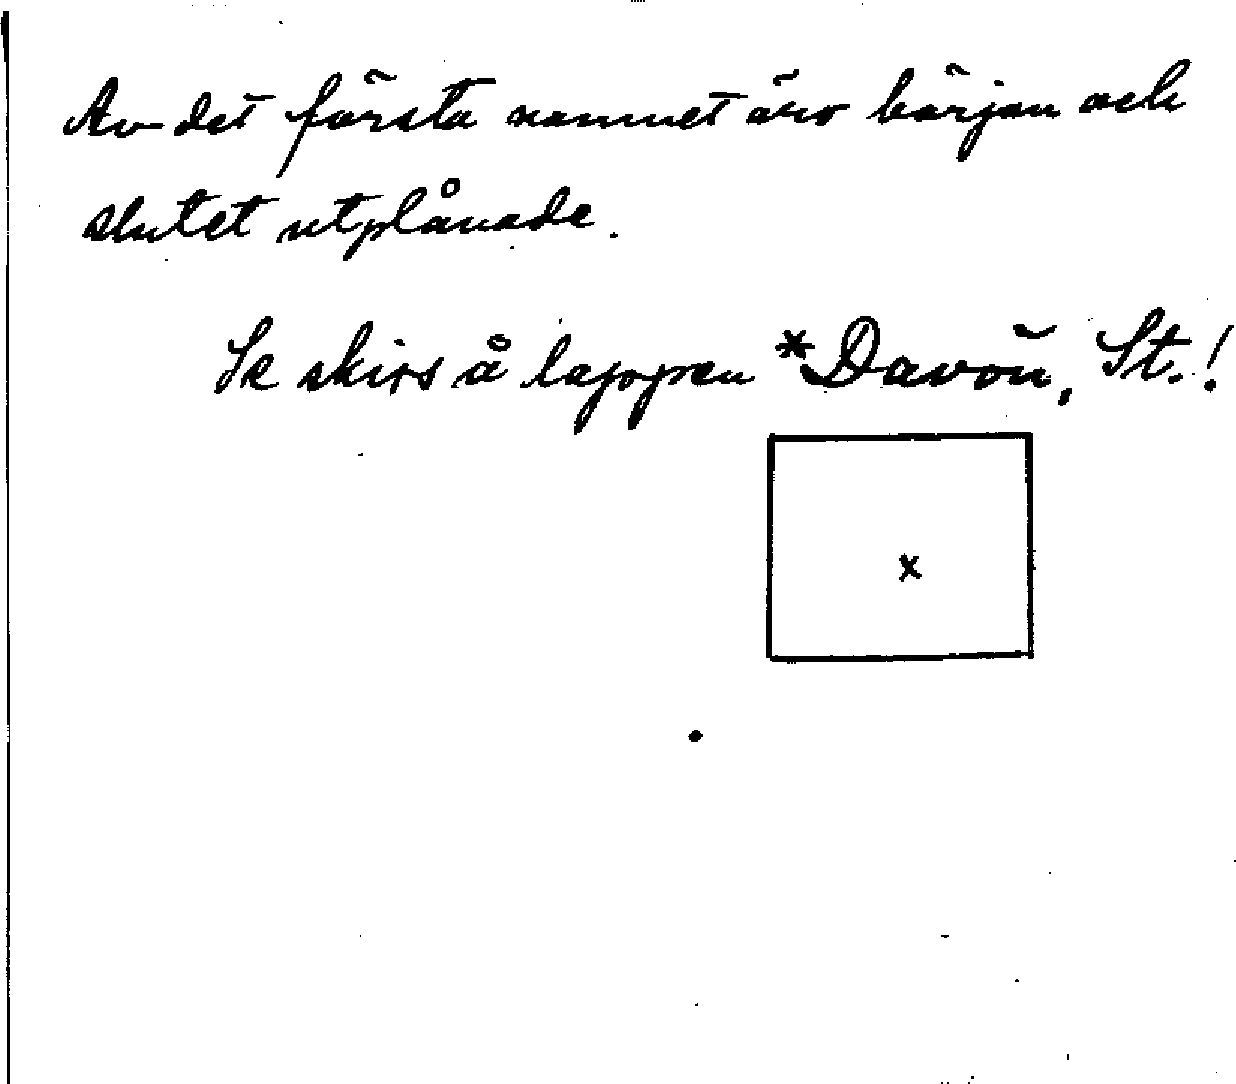 Av det första namnet äro början och
slutet utplånade.
Se skiss å lappen *Davöü, St.!
x